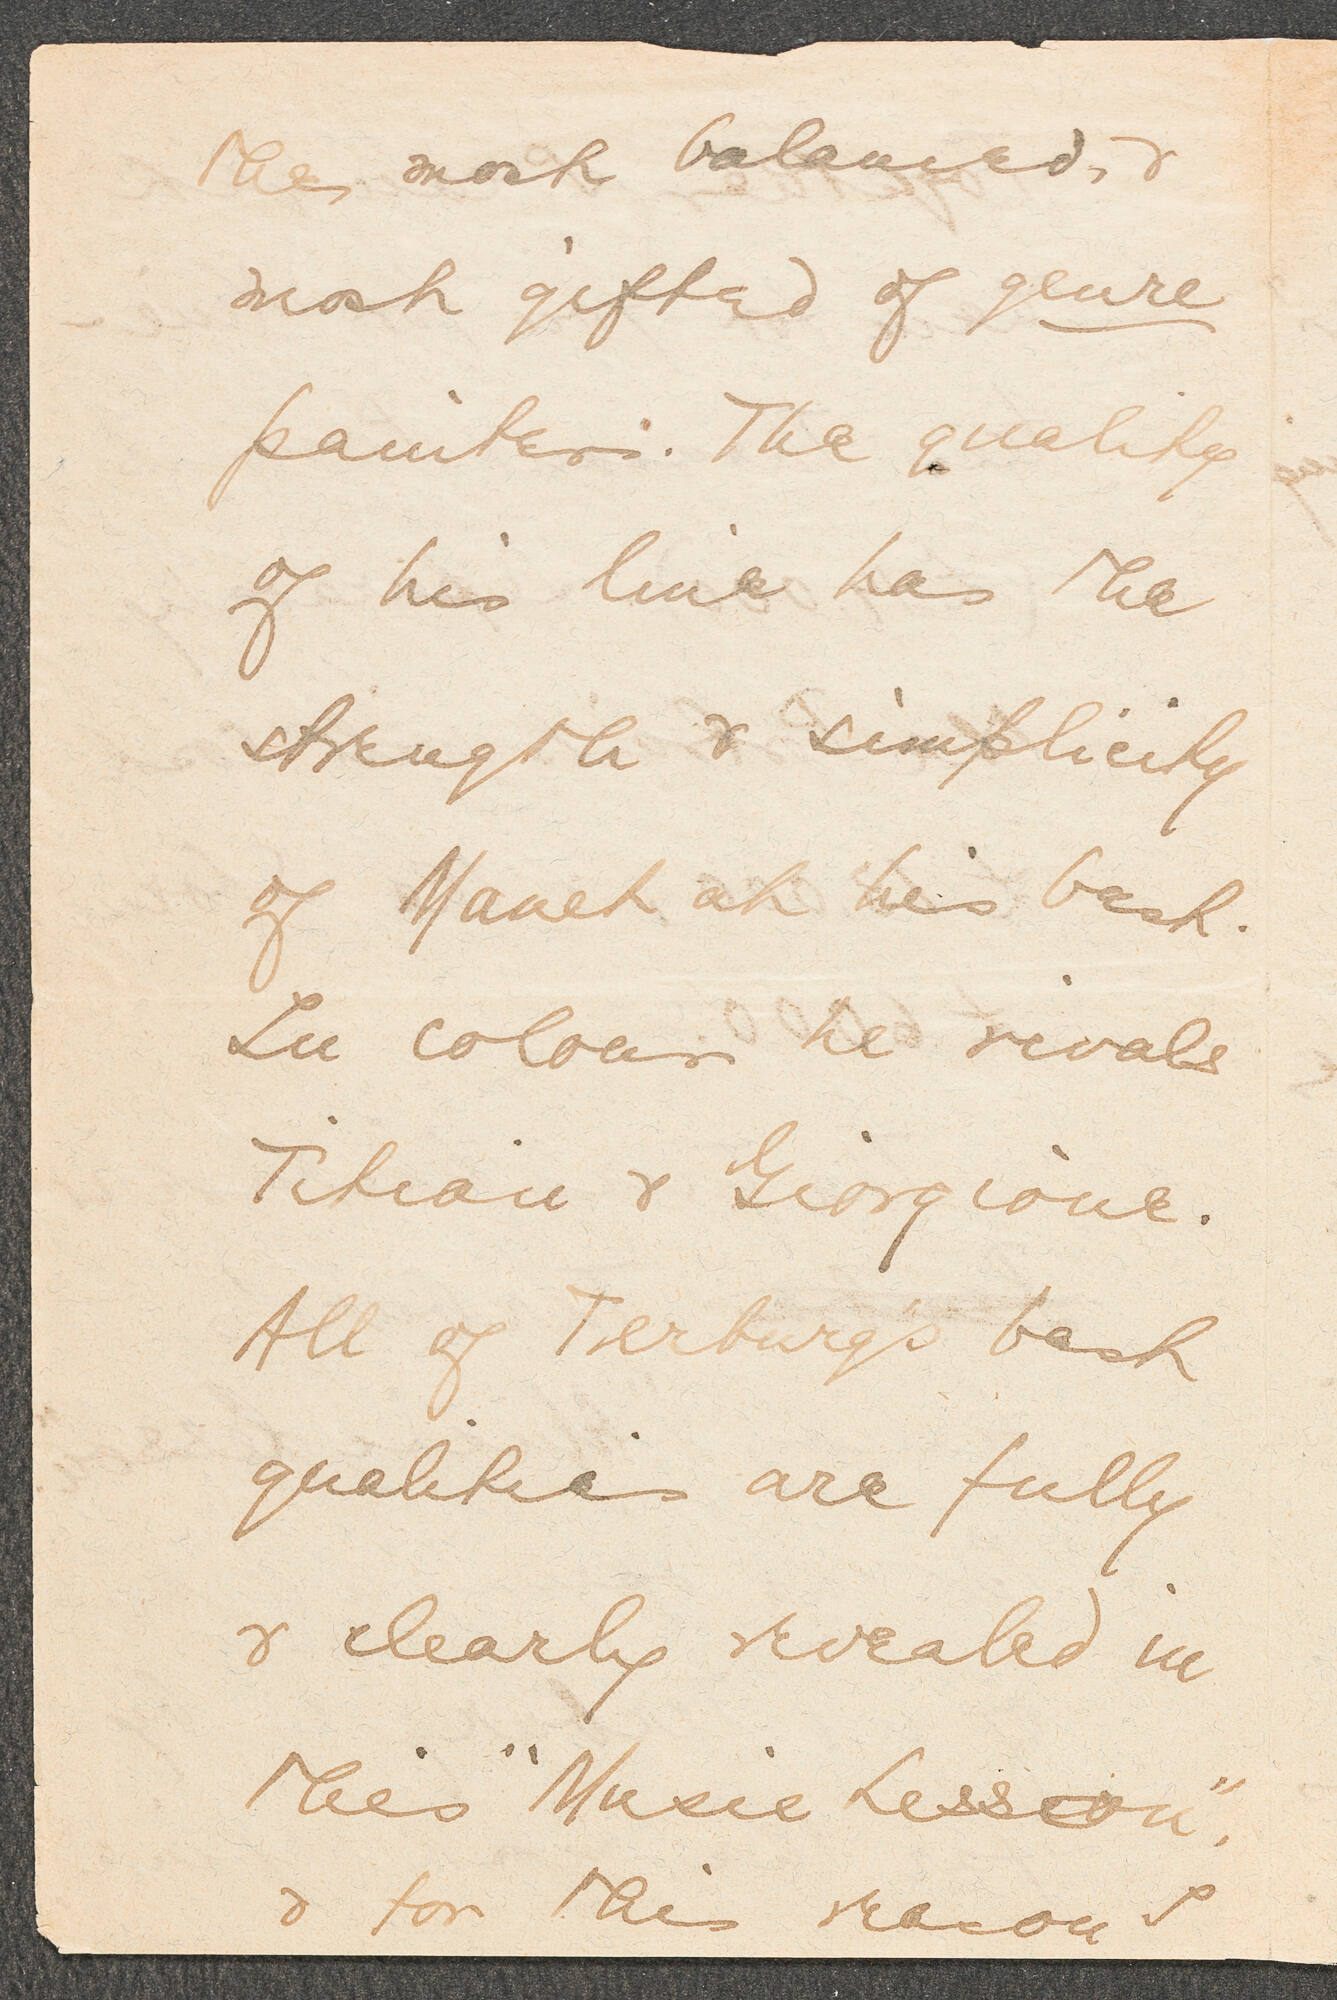 the, most balanced, &
most gifted of genre
painters. The quality
of his line has the
strength & simplicity
of Manet at his best.
In colour he rivals
Titian & Giorgione.
All of Terburg's best
qualities are fully
& clearly revealed in
this "Music Lesson",
& for this reason I